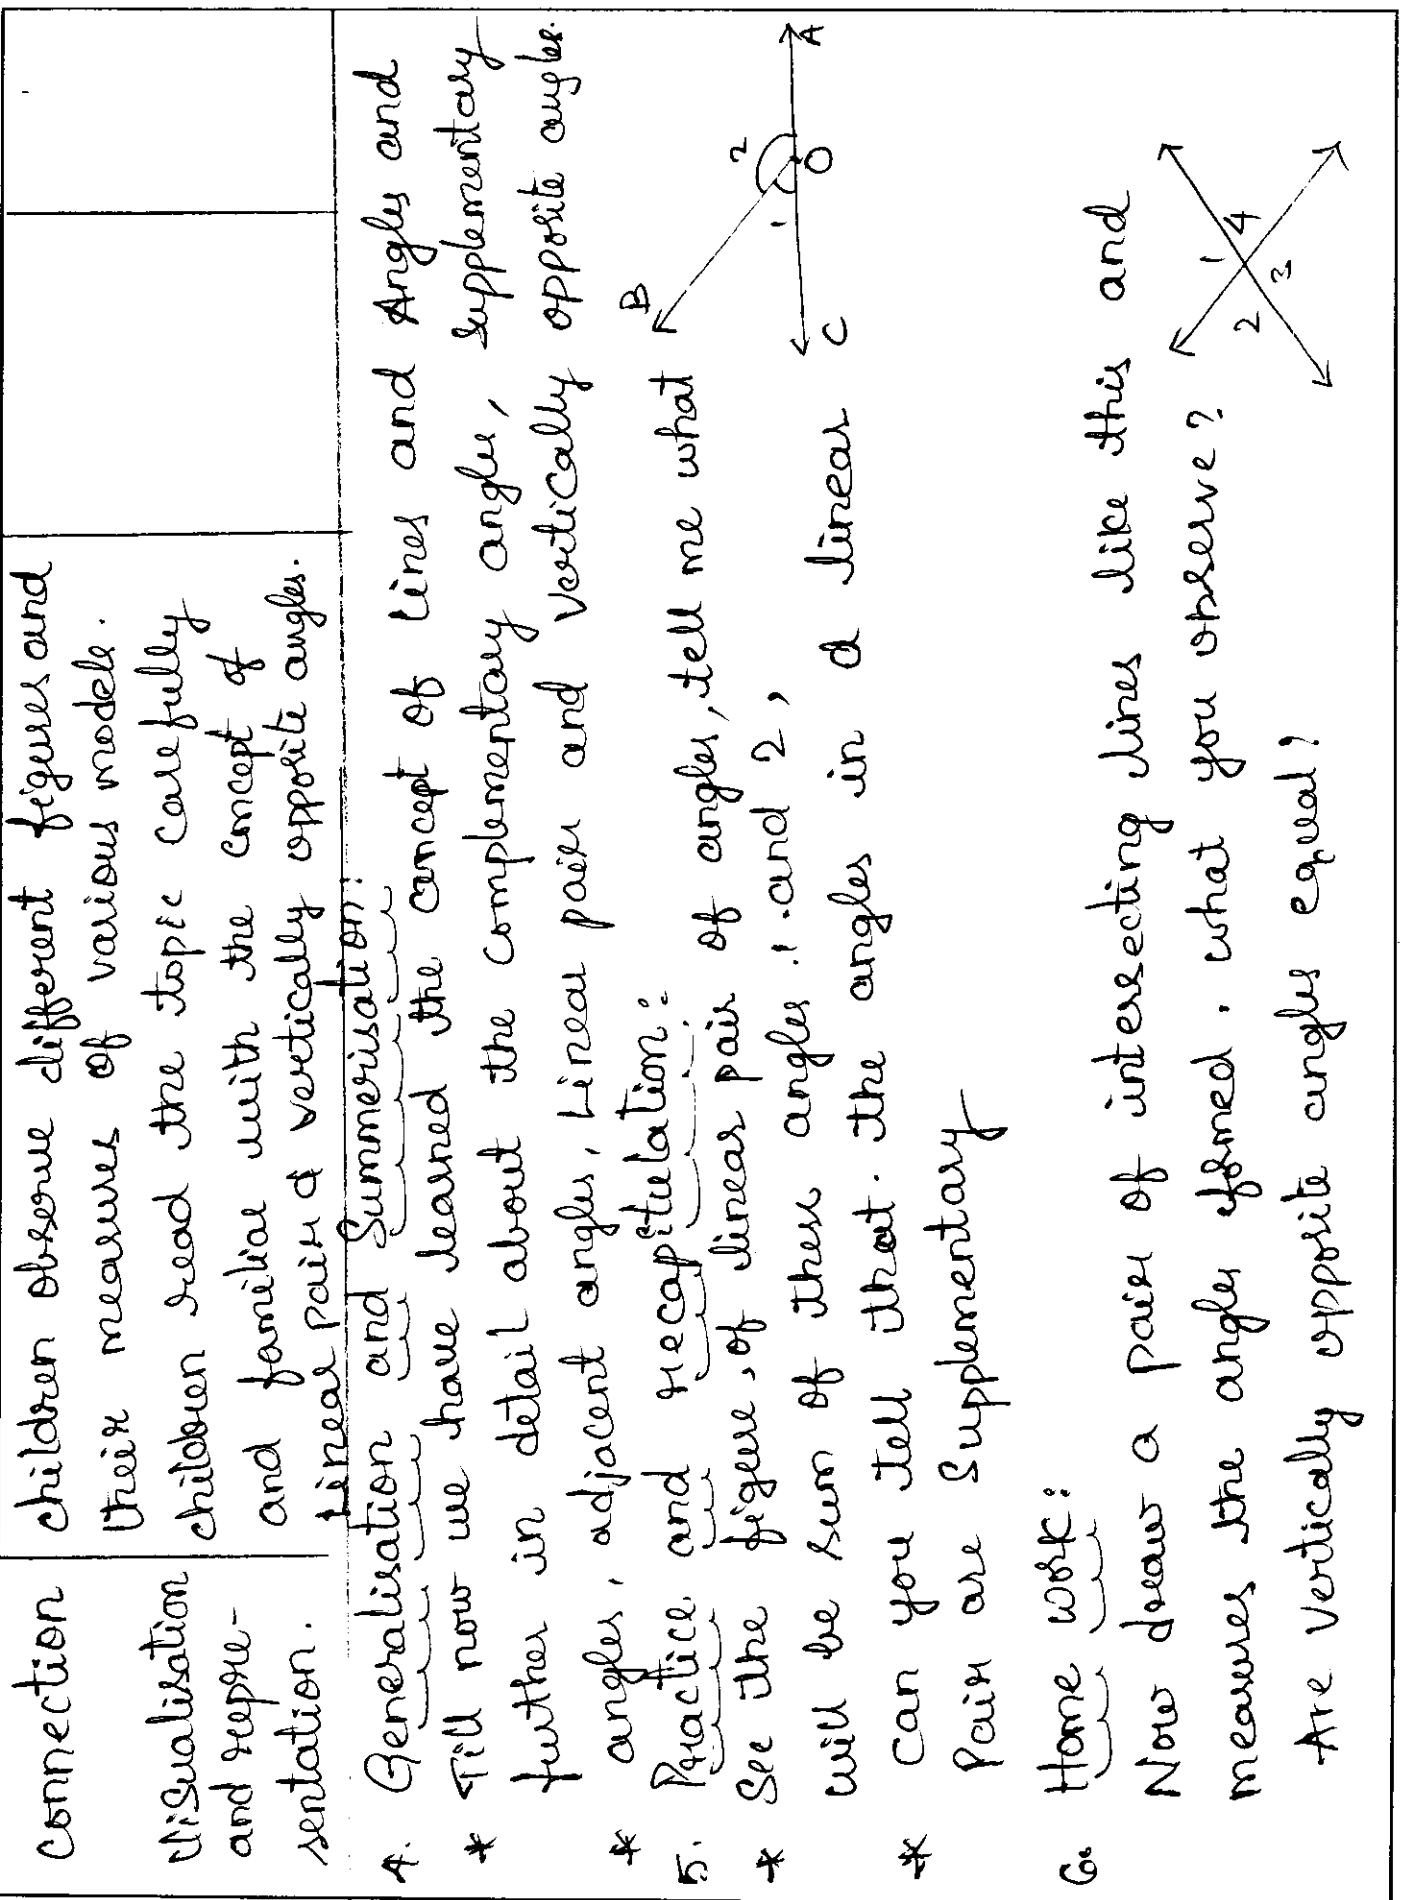 connection
children observe different figures and
their measures of various models.
visualisation
and repre-
sentation.
children read the topic carefully
and familiar with the concept of
Linear pair & vertically opposite angles.
4. Generalisation and Summerisation:
* Till now we have learned the concept of lines and Angles and
further in detail about the complementary angle, supplementary
* angles, adjacent angles, Linear pair and vertically opposite angles.
5. Practice and recapitulation:
* See the figure, of linear pair of angles, tell me what
will be sum of these angles 1 and 2,
* Can you tell that the angles in a linear
Pair are Supplementary
B
2
1
C
O
A
6. Home work:
Now draw a pair of intersecting lines like this and
measures the angles formed. what you observe?
Are vertically opposite angles equal?
1
2
4
3